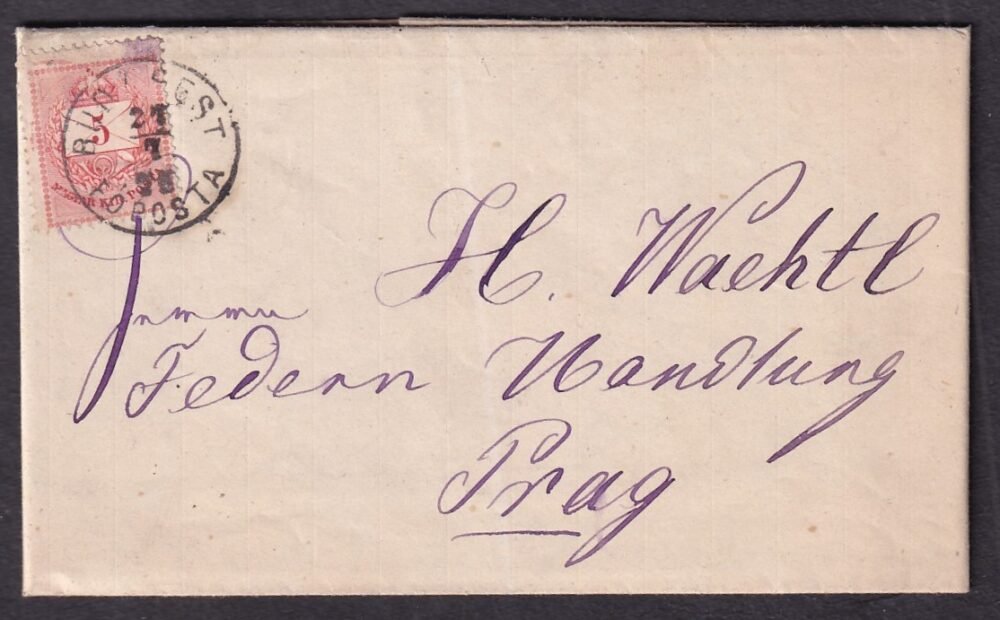 5
MAGYAR KIR. POSTA
BUDAPEST
21
7
FŐPOSTA
Herrn
H. Wachtl
Federn Handlung
Prag